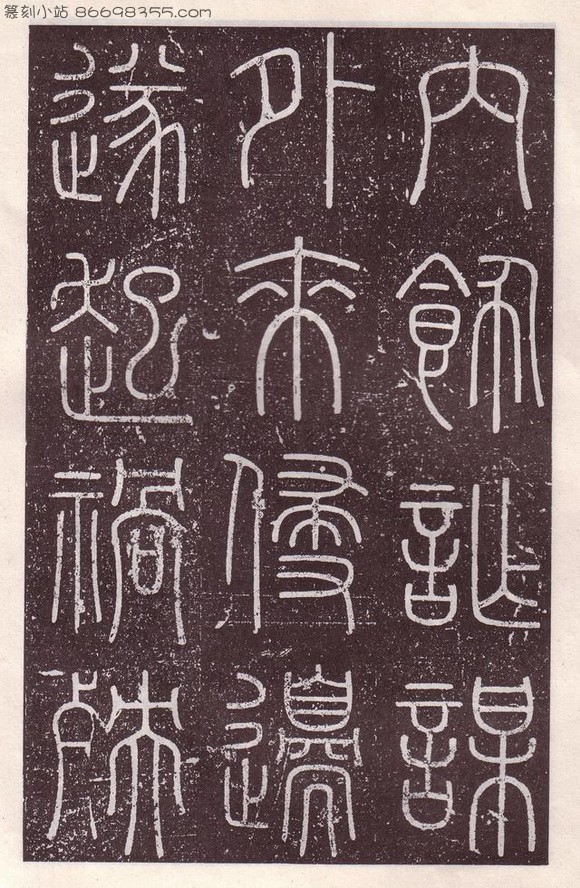 篆刻小站 86698355.com
內飾詐謀
外來侵邊
遂起禍殃